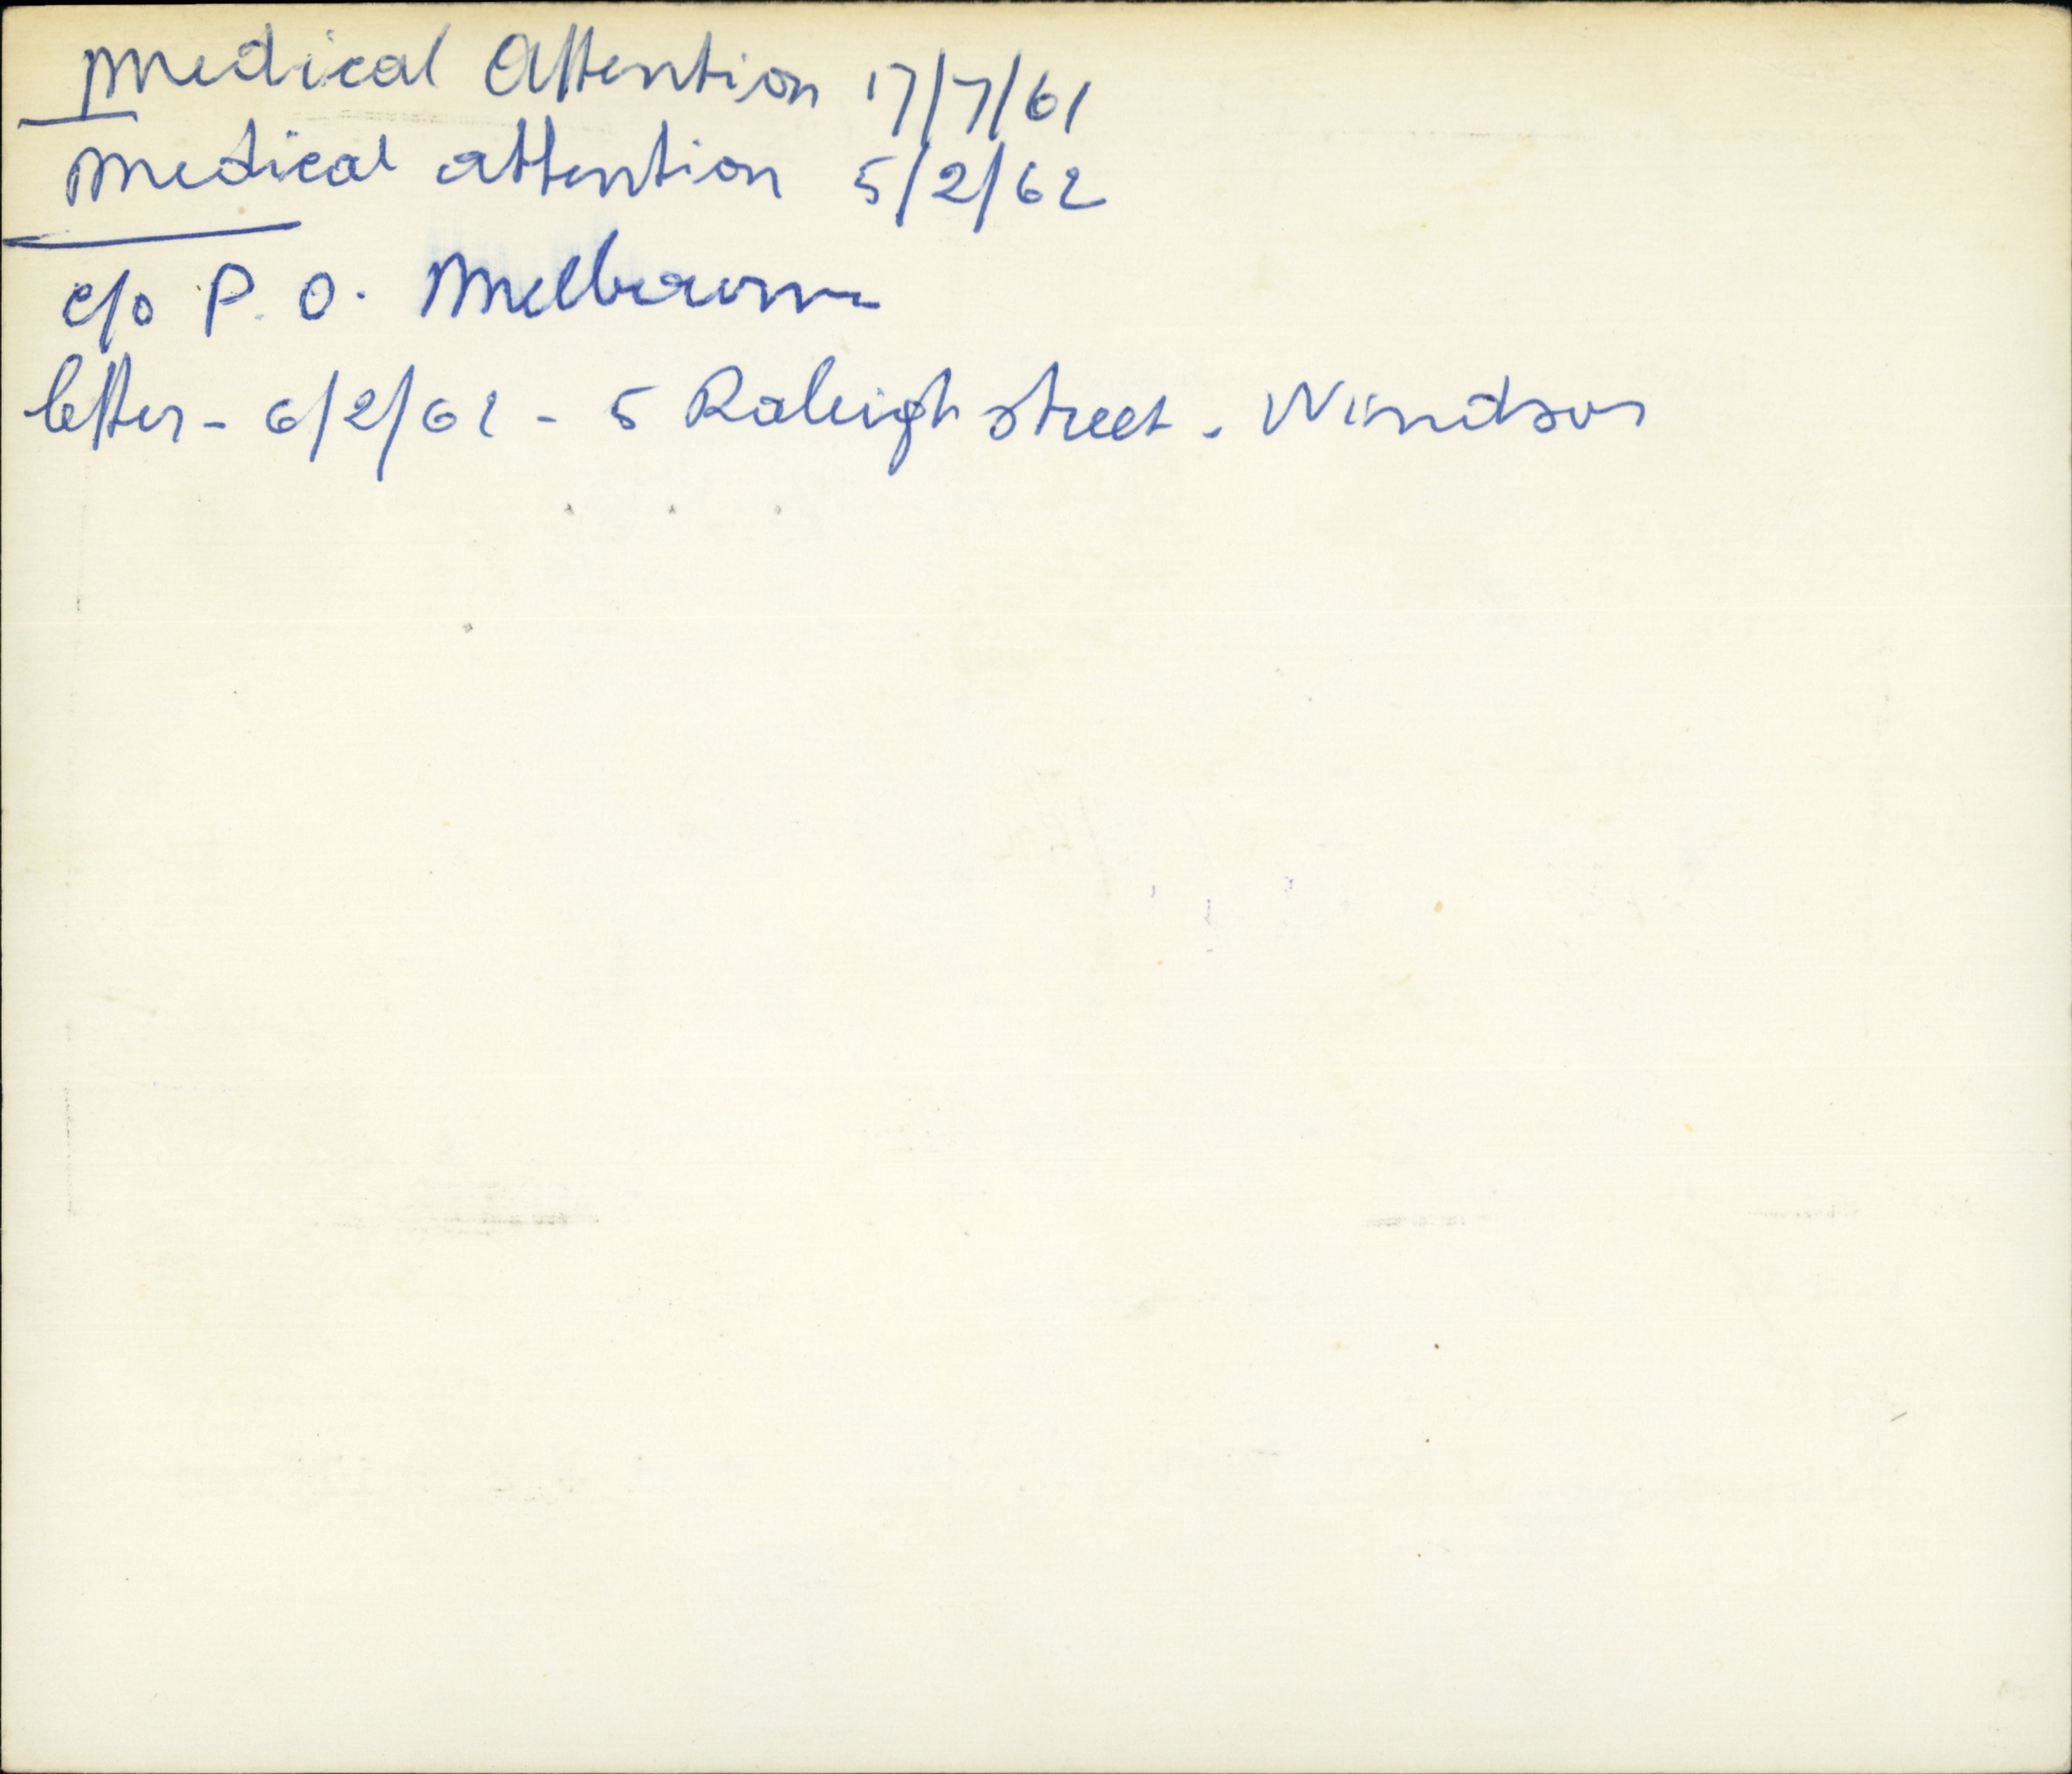 Medical Attention 17/7/61
Medical attention 5/2/62
c/o P.O. Melbourne
letter - 6/2/62 - 5 Raleigh street - Windsor